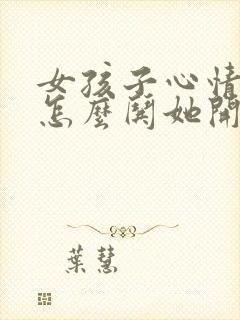 女孩子心情
怎麼鬨她開
葉慧